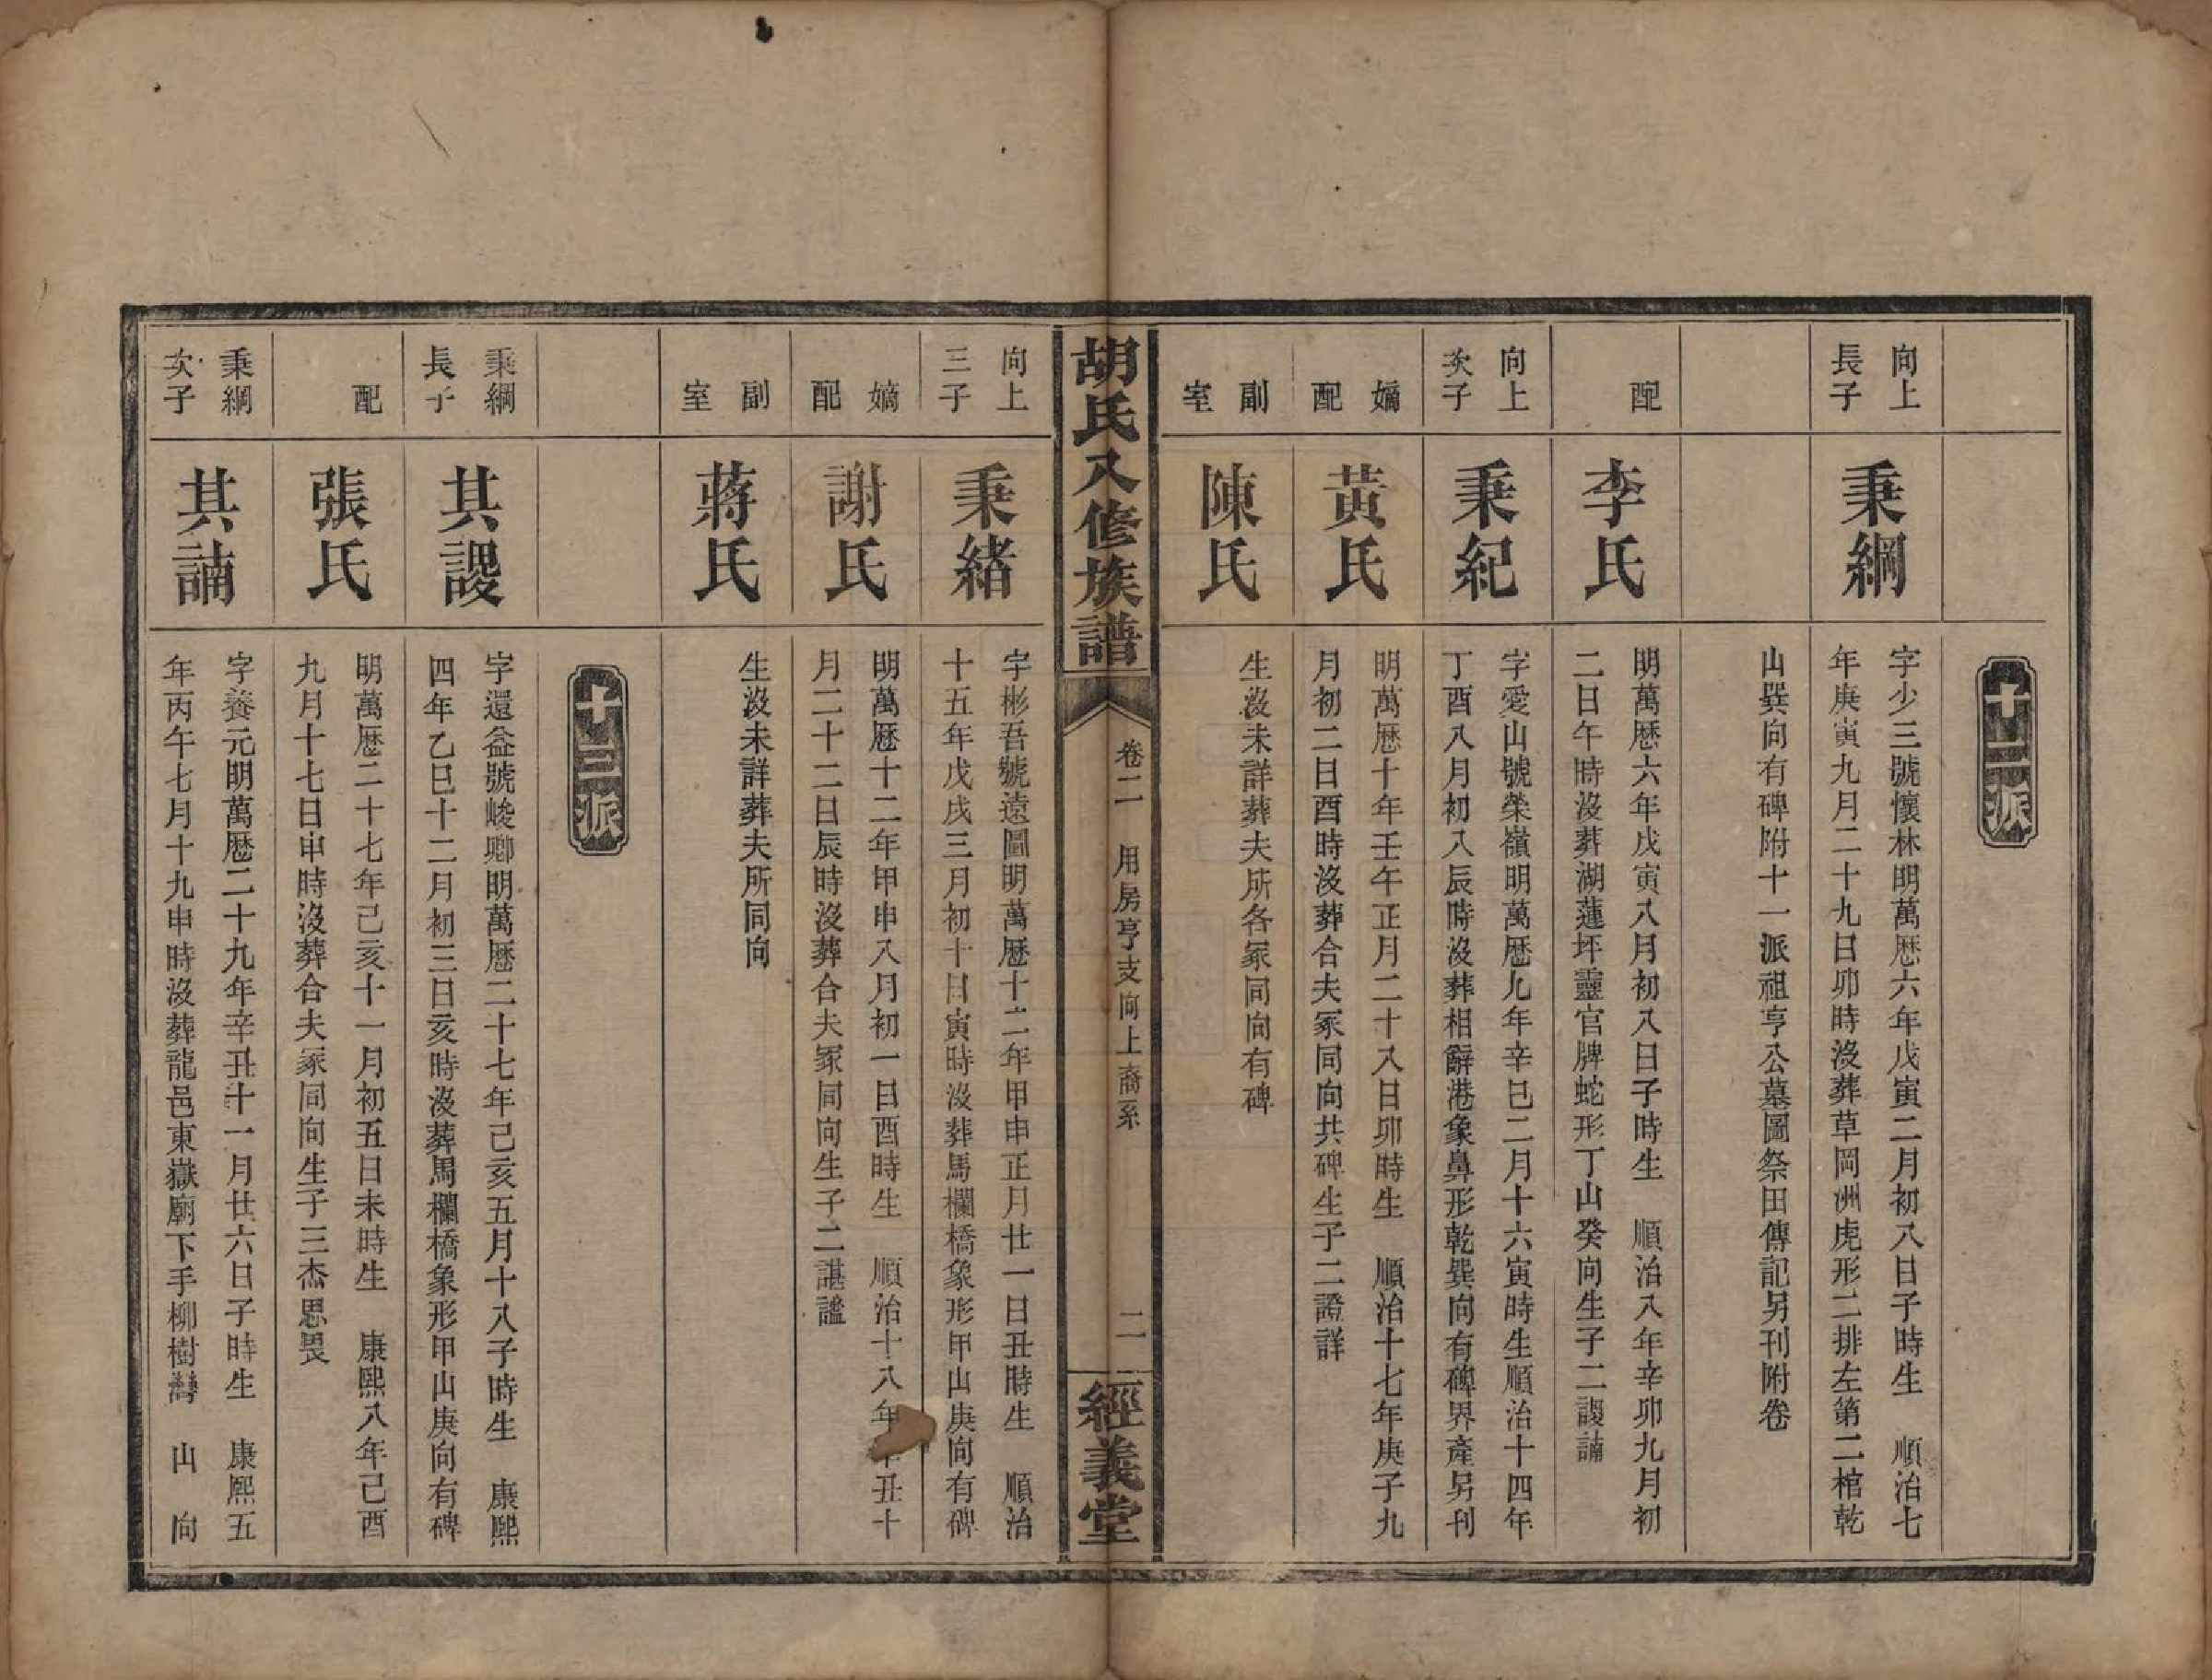 十二派
向上
長子
秉綱
字少三號懷林明萬厯六年戊寅二月初八日子時生　順治七
年庚寅九月二十九日卯時沒葬草岡洲虎形二排左第二棺乾
山巽向有碑附十一派祖亨公墓圖祭田傳記另刊附卷
配
李氏
明萬厯六年戊寅八月初八日子時生　順治八年辛卯九月初
二日午時沒葬湖蓮坪靈官牌蛇形丁山癸向生子二謖諵
向上
次子
秉紀
字愛山號榮嶺明萬厯九年辛巳二月十六寅時生順治十四年
丁酉八月初八辰時沒葬相辭港象鼻形乾巽向有碑界產另刊
嫡
配
黃氏
明萬厯十年壬午正月二十八日卯時生　順治十七年庚子九
月初二日酉時沒葬合夫冢同向共碑生子二證詳
副
室
陳氏
生沒未詳葬夫所各冢同向有碑
胡氏八修族譜
卷二　用房亨支向上裔系
二
經義堂
向上
三子
秉緒
字彬吾號遠圖明萬厯十二年甲申正月廿一日丑時生　順治
十五年戊戌三月初十日寅時沒葬馬欄橋象形甲山庚向有碑
嫡
配
謝氏
明萬厯十二年甲申八月初一日酉時生　順治十八年丑十
月二十二日辰時沒葬合夫冢同向生子二諶謐
副
室
蔣氏
生沒未詳葬夫所同向
十三派
秉綱
長子
其謖
字還益號峻卿明萬厯二十七年己亥五月十八子時生　康熙
四年乙巳十二月初三日亥時沒葬馬欄橋象形甲山庚向有碑
配
張氏
明萬厯二十七年己亥十一月初五日未時生　康熙八年己酉
九月十七日申時沒葬合夫冢同向生子三杰思畏
秉綱
次子
其諵
字養元明萬厯二十九年辛丑十一月廿六日子時生　康熙五
年丙午七月十九申時沒葬龍邑東嶽廟下手柳樹灣　山　向